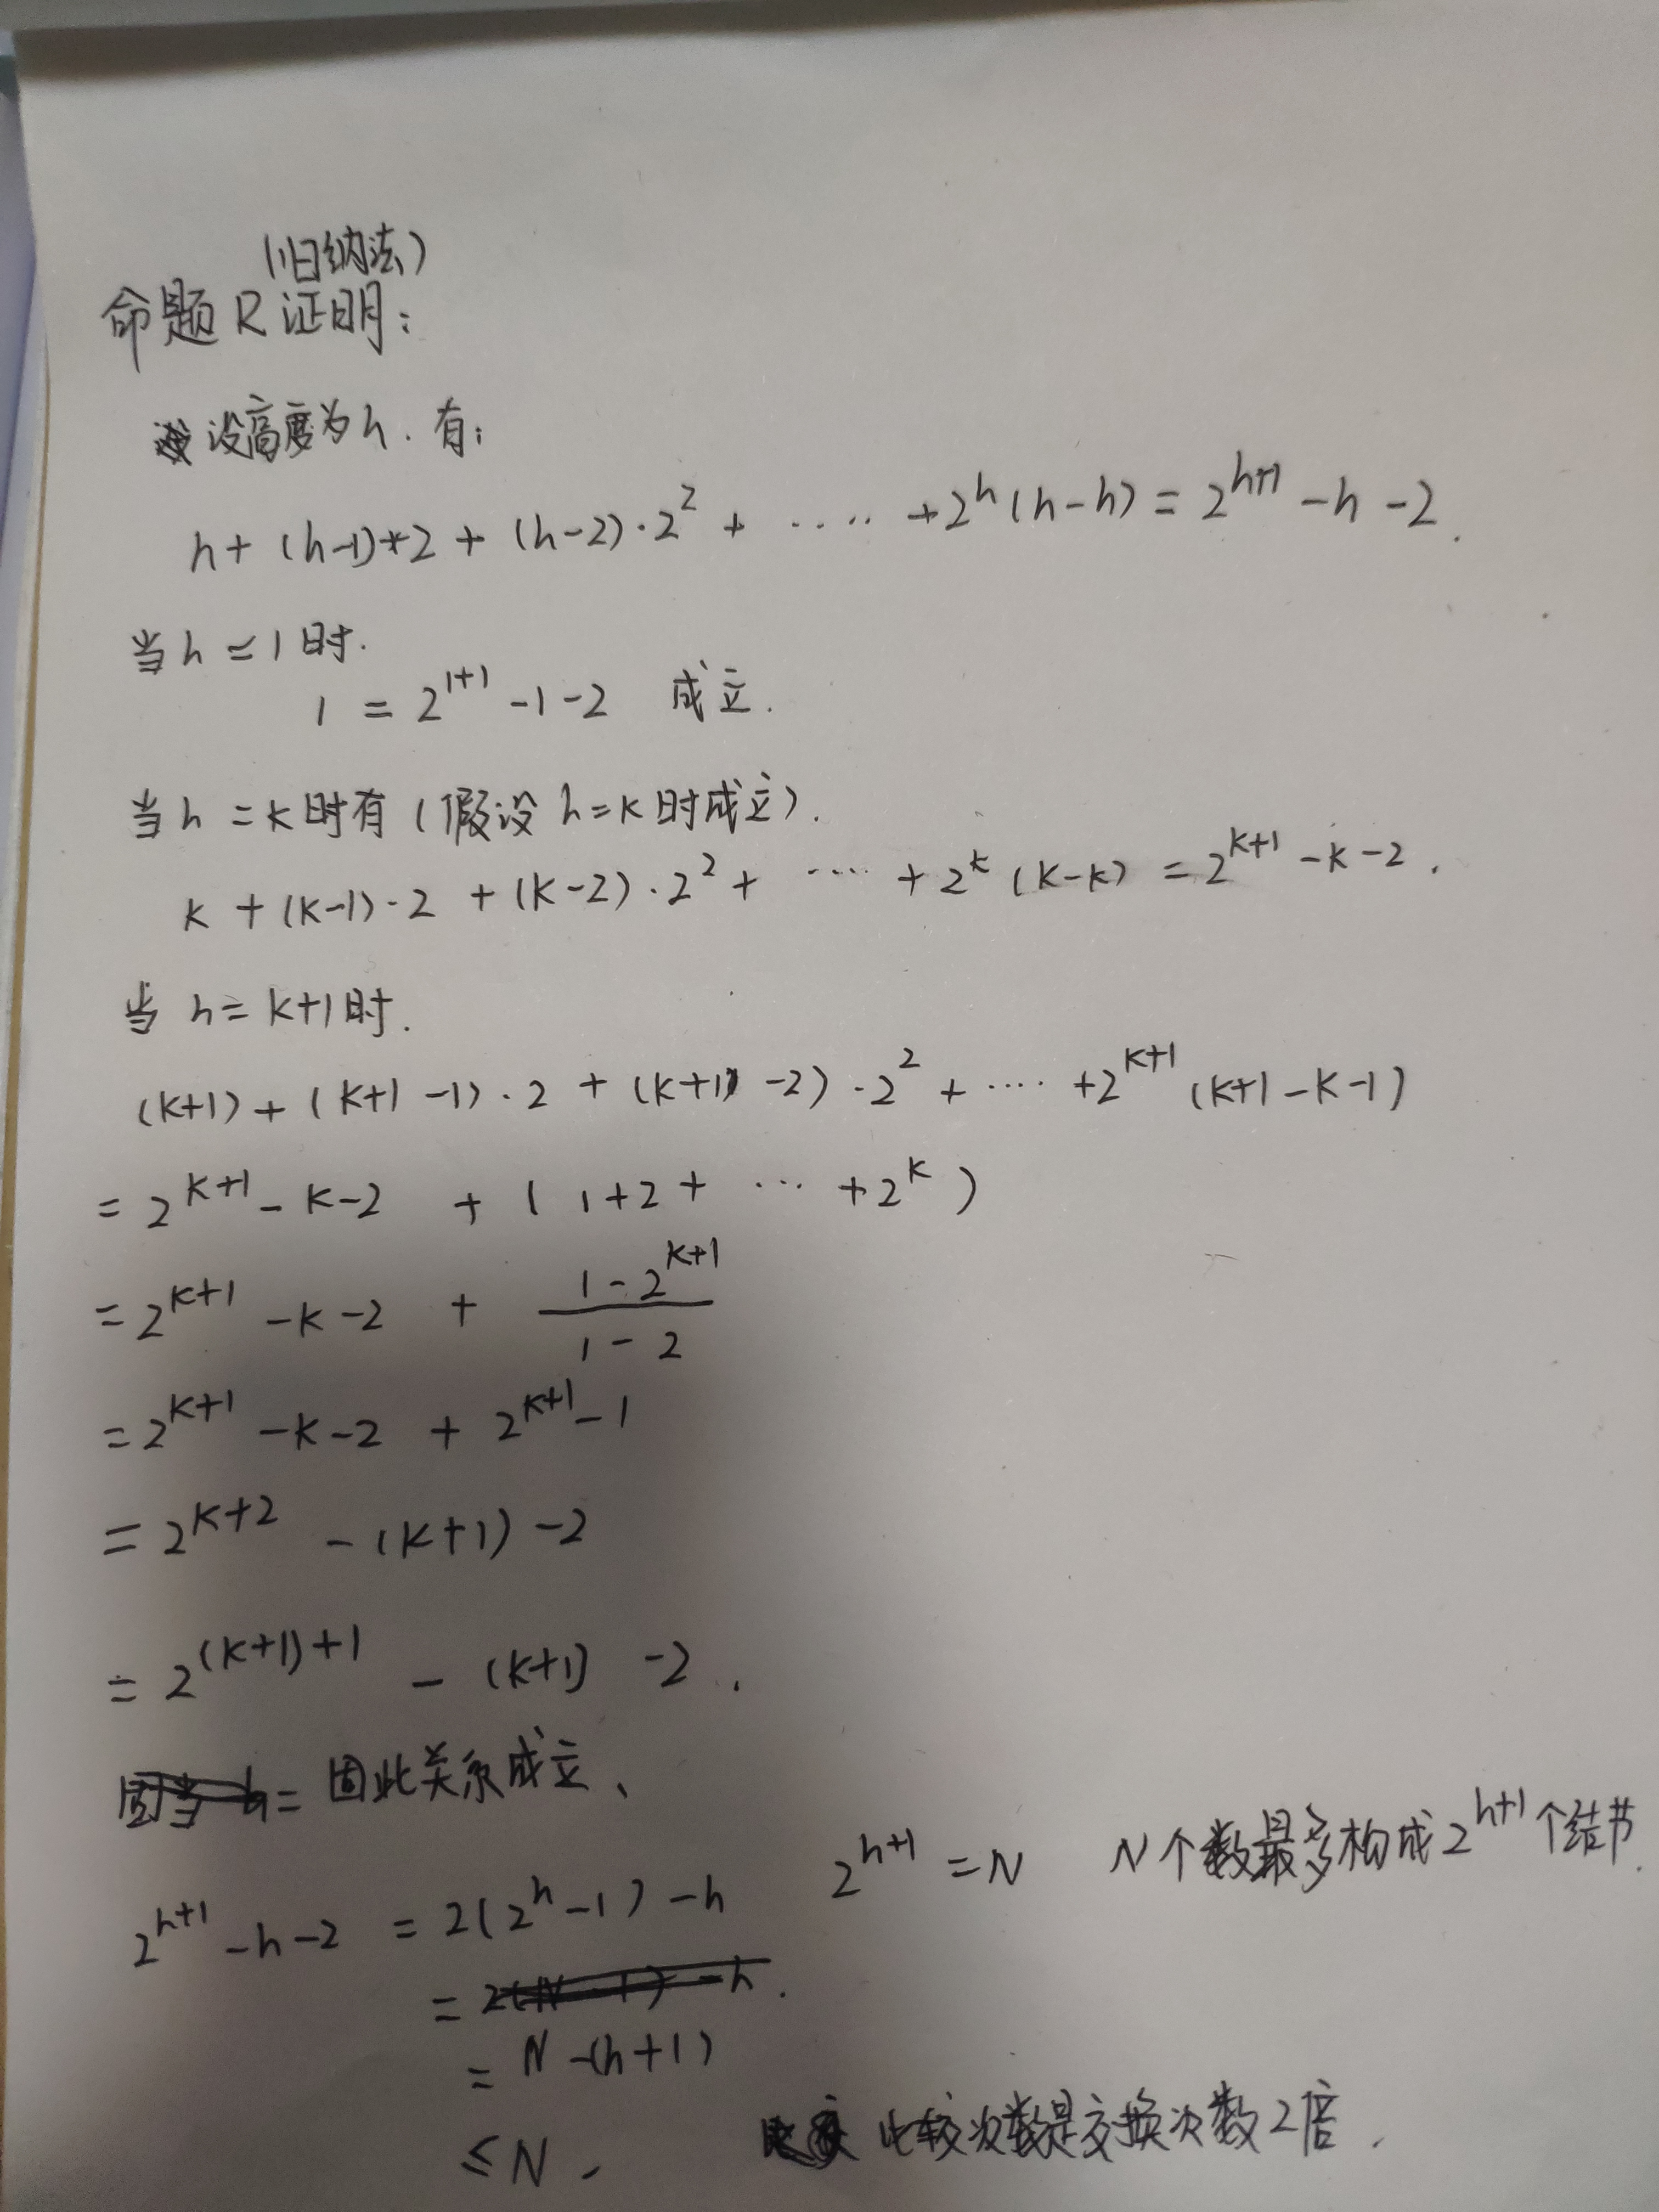 (归纳法)
命题R证明：
设高度为h.有：
h+(h-1)*2+(h-2)·2^2+·····+2^h(h-h)=2^{h+1}-h-2.
当h=1时.
1=2^{1+1}-1-2 成立.
当h=k时有(假设h=k时成立).
k+(k-1)·2+(k-2)·2^2+····+2^k(k-k)=2^{k+1}-k-2.
当h=k+1时.
(k+1)+(k+1-1)·2+(k+1-2)·2^2+····+2^{k+1}(k+1-k-1)
=2^{k+1}-k-2+(1+2+···+2^k)
=2^{k+1}-k-2+\frac{1-2^{k+1}}{1-2}
=2^{k+1}-k-2+2^{k+1}-1
=2^{k+2}-(k+1)-2
=2^{(k+1)+1}-(k+1)-2.
因此关系成立、
2^{h+1}=N N个数最多构成2^{h+1}个结节.
2^{h+1}-h-2=2(2^h-1)-h
=2(N-1)-h.
=N-(h+1)
≤N. 比较次数是交换次数2倍.